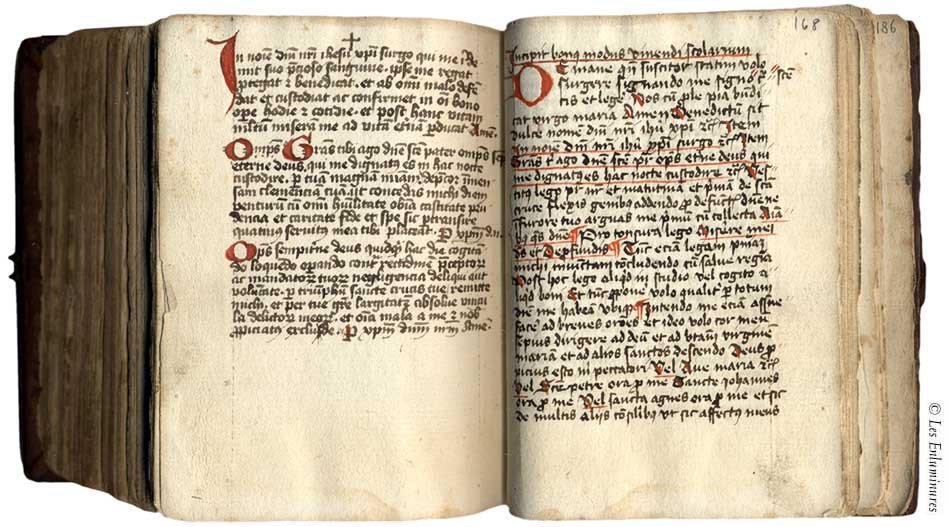 In noīe dn̄i nr̄i ihesu xp̄i surgo qui me rede
mit suo p̄cioso sanguine. ip̄se me regat
ꝓtegat et benedicat. et ab om̄i malo defen
dat et custodiat ac confirmet in oī bono
oꝑe hodie et cotidie. et post hanc vitam
miserā me ad vitā et̄nā ꝑducat Amē.
Om̄ps Grās tibi ago dn̄e scē pater om̄ps
eterne deus. qui me dignatus es in hac nocte
custodire. ꝑ tuā magnā miām. dep̄cor īmen
sam clemenciā tuā ut concedas michi diem
venturū cū om̄i humilitate castitate
et caritate fide et spe sic ꝑtransire
quatinus servitus mea tibi placeat. P xp̄m dn̄
Om̄ps sempit̄ne deus quidquid hac die cogitā
do loquēdo oꝑando cont̄ rectitudinē p̄ceptorū
ac mandatorū tuorū negligencia deliqui aut
ꝑ triumphū sancte crucis tue remitte
michi. et per tue gr̄e largitatē absolue
delictorū meorū. et om̄ia mala a me
exclude. P xp̄m dn̄m nr̄m Amē.
168
186
Incipit bonus modus vivendi scolarium
De mane qn̄ suscitor statim volo
surgere signando me signo scē
crucis et lege. Nos cū ꝓle pia bn̄di
cat virgo maria Amen Benedictū sit
dulce nomen dn̄i nr̄i ihū xp̄i ꝛc̄ Item
In noīe dn̄i nr̄i ihū xp̄i surgo ꝛc̄ Item
Grās t̄ ago dn̄e scē pr̄ om̄ps et̄ne deus qui
me dignatus es hac nocte custodire ꝛc̄ Ves
titus lego pr̄ nr̄ et matutinā et p̄mā de scā
cruce flexis genibus addendo ꝓ defunctis dn̄e ne
furore tuo arguas me p̄mum cū collecta
Pro tonsura lego Miserere mei
ds̄ et De ꝓfundis Tūc eciā legam p̄mas
michi iniunctam concludendo cū salve regina
Post hoc lego aliqd in studio vel cogito a
liqd boni Et tūc ꝓpone volo qualit̄ ꝑ totum
diē me habeā Intendo me eciā assue
facē ad breves orōes et ideo volo cor meū
sepius dirigere ad deū et ad virginē
mariam et ad alios sanctos dicendo Deus ꝓ
picius esto mi peccatori Vel Ave maria ꝛc̄
Vel Scē petre ora ꝓ me Sancte Iohannes
ora ꝓ me Vel sancta agnes ora ꝓ me et sic
de multis aliis ut sic affectus meus
© Les Enluminures